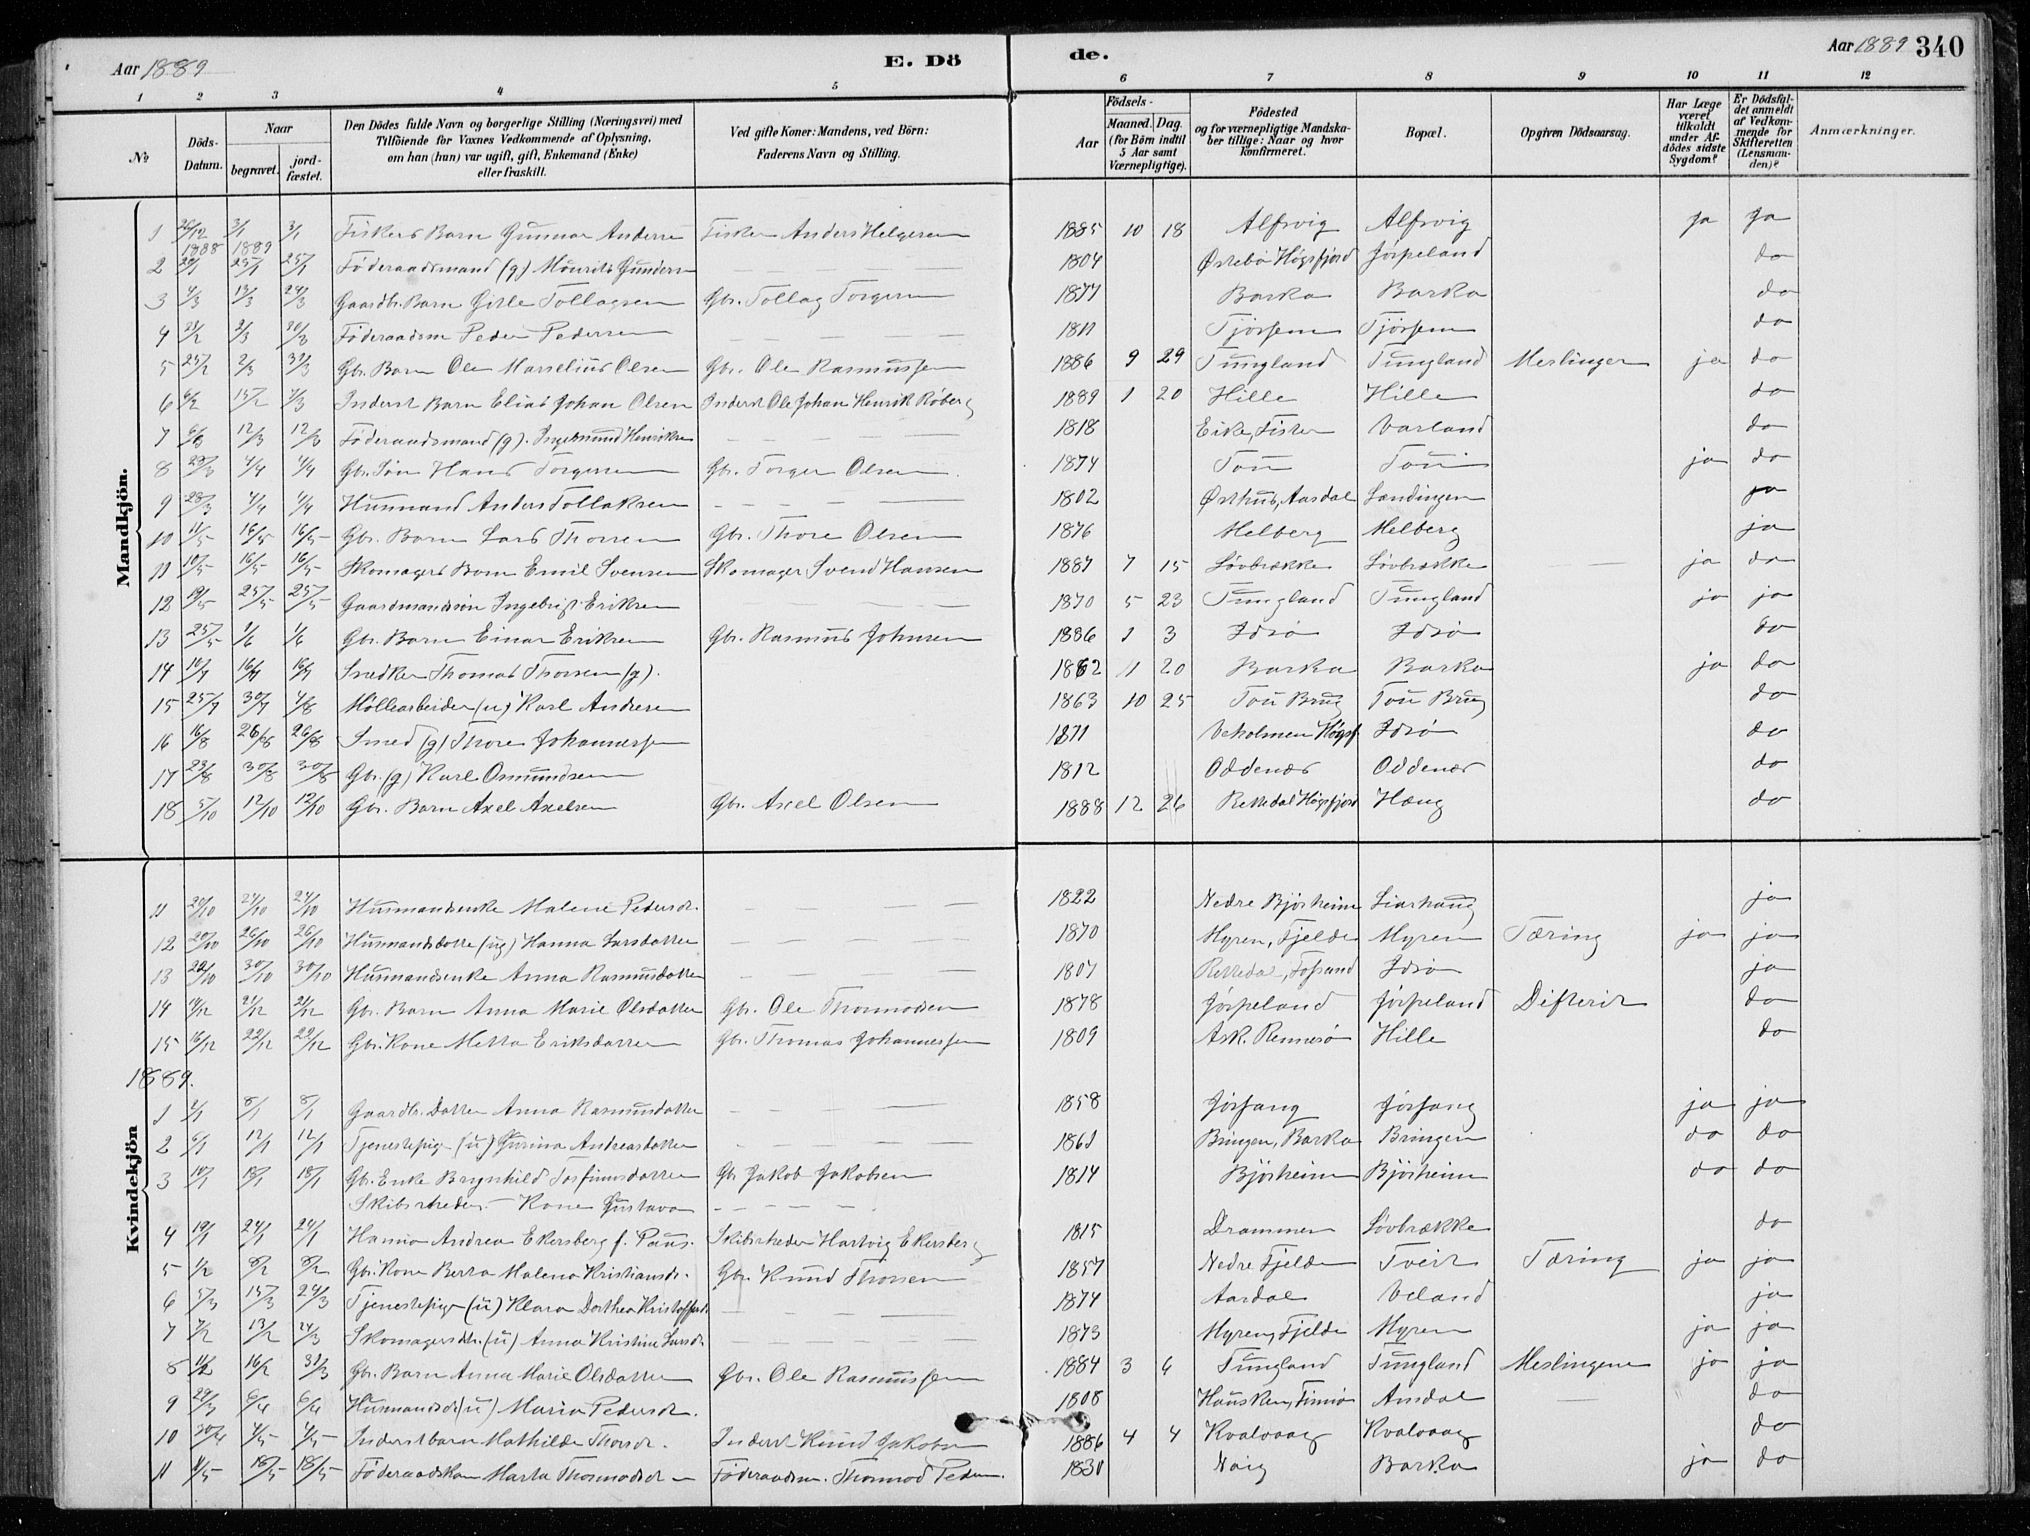 Aar 1889
E. Dö
de.
Aar 1889 340
1 2 3 4 5 6 7 8 9 10 11 12
No
Döds-Datum.
Naar
begravet.
jord-fæstet.
Den Dödes fulde Navn og borgerlige Stilling (Næringsvei) med Tilföiende for Voxnes Vedkommende af Oplysning, om han (hun) var ugift, gift, Enkemand (Enke) eller fraskilt.
Ved gifte Koner: Mandens, ved Börn: Faderens Navn og Stilling.
Födsels-
Aar
Maaned. Dag.
(for Börn indtil 5 Aar samt Værnepligtige).
Födested og for værnepligtige Mandskaber tillige: Naar og hvor konfirmeret.
Bopæl.
Opgiven Dödsaarsag.
Har Læge været tilkaldt under Afdödes sidste Sygdom?
Er Dödsfaldet anmeldt af Vedkommende for Skifteretten (Lensmanden)?
Anmærkninger.
Mandkjön.
1 3/1 3/1 Fiskers Barn Gunnar Anders Fisker Anders Helgesen 1885 10 18 Alfsvig Alfsvig ja ja
1888 1889
2 25/1 25/1 Föderaadsmand (g) Mourits Gunders 1804 Østebö Högsfjord Jörpeland do
3 4/3 13/3 24/3 Gaardbr. Barn Gitle Tollagsen Gbr. Tollag Torgersen 1877 Barka Barka do
4 2/3 Föderaadsm Peder Pedersen Tjössem Tjössem do
5 25/2 2/3 31/3 Gbr. Barn Ole Marselius Olsen Gbr. Ole Rasmussen 1886 9 29 Tungland Tungland Meslinger ja do
6 15/2 Inderst Barn Elias Johan Olsen Inderst Ole Johan Henrik Roberg 1889 1 20 Hille Hille do
7 12/3 12/3 Föderaadsmand (g). Ingebrund Henriksen 1818 Eike, Fister Varland do
8 4/4 4/4 Gbr. Sön Hans Torgersen Gbr. Torger Olsen 1874 Tou Tou ja do
9 28/3 4/4 4/4 Husmand Anders Tollaksen 1802 Østhus, Aardal Lændingen ja
10 11/5 16/5 16/5 Gbr. Barn Lars Thorsen Gbr. Thore Olsen 1876 Melberg Melberg ja
11 10/5 16/5 16/5 Skomagers Barn Emil Svensen Skomager Svend Hansen 1887 7 15 Løvbrække Løvbrække ja do
12 19/5 25/5 25/5 Gaardmandssön Ingebrigt Eriksen 1870 5 23 Tungland Tungland ja ja
13 25/5 1/6 1/6 Gbr. Barn Einar Eriksen Gbr. Rasmus Johnsen 1886 1 3 Idsö Idsö do
14 10/7 16/7 16/7 Snedker Thomas Thorsen (g). 1862 11 20 Barka Barka ja do
15 25/7 30/7 4/8 Möllearbeider (u) Karl Andersen 1863 10 25 Tou Brug Tou Brug do
16 16/8 26/8 26/8 Smed (g) Thore Johannessen Veholmen Høgsf Idsö do
17 23/8 30/8 30/8 Gbr. (g) Karl Osmundsen 1812 Oddenæs Oddenæs do
18 5/10 12/10 12/10 Gbr. Barn Axel Axelsen Gbr. Axel Olsen 1888 12 26 Rettedal Högsfjord Hæng do
Kvindekjön
11 24/10 24/10 Husmandsenke Malene Pedersdr. 1822 Nedre Bjørheim Liarhaug ja
12 20/10 26/10 26/10 Husmandsdatter (ug) Hanna Larsdatter 1870 Myren, Fjelde Myren Tæring ja ja
13 22/10 30/10 30/10 Husmandsenke Anna Rasmusdatter 1807 Rettedal, Fossand Idsö ja
14 21/12 21/12 Gbr. Barn Anna Marie Olsdatter Gbr. Ole Thormodsen 1878 Jörpeland Jörpeland Difterit do
15 16/12 22/12 22/12 Gbr. Kone Metta Eriksdatter Gbr. Thomas Johannessen 1809 Ask. Rennesö Hille do
1889.
1 2/1 8/1 8/1 Gaardbr. Datter Anna Rasmusdatter 1858 Jössang Jössang ja ja
2 6/1 12/1 12/1 Tjenestepige (u) Gurina Andreasdatter 1861 Bringen, Barka Bringen do do
3 10/1 18/1 18/1 Gbr. Enke Brynhild Torfinnsdatter Gbr Jakob Jakobsen 1814 Björheim Björheim do do
Skibsrheder Kone Gustava
4 19/1 24/1 24/1 Hanna Andrea Ekersberg f. Paus. Skibsrheder Hartvig Ekersberg 1815 Drammen Løvbrække do
5 1/2 8/2 8/2 Gbr. Kone Berta Malena Kristiansdr. Gbr. Knud Thorsen 1857 Nedre Fjelde Tveit Tæring ja ja
6 5/3 15/3 24/3 Tjenestepige (u) Klara Dorthea Kristoffersdr 1874 Aardal Veland ja
7 7/2 13/2 24/3 Skomagersdtr. (u) Anna Kristine Larsdr 1873 Myren, Fjelde Myren ja ja
8 11/2 16/2 31/3 Gbr. Barn Anna Marie Olsdatter Gbr. Ole Rasmussen 1884 3 6 Tungland Tungland Meslingene ja ja
9 29/3 6/4 6/4 Husmandsdr (u) Maria Pedersdr. 1808 Hausken, Finnö Amdal do
10 30/4 4/5 4/5 Inderstbarn Mathilde Thorsdr. Inderst Knud Jakobsen 1886 4 4 Kvalvaag Kvalvaag do
11 18/5 18/5 Föderaadskone Marta Thormodsdr Föderaadsm. Thormod Peders. 1830 Naig Barka ja do